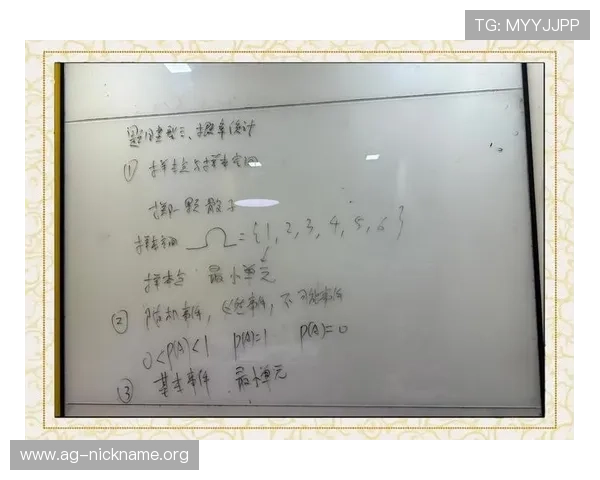 TG: MYYJJPP
题型三、概率统计
① 样本点与样本空间
掷一颗散子
样本空间 Ω={1,2,3,4,5,6}
样本点 最小单元
② 随机事件,必然事件,不可能事件
0<P(A)<1 P(A)=1 P(A)=0
③ 基本事件 最小单元
www.ag-nickname.org